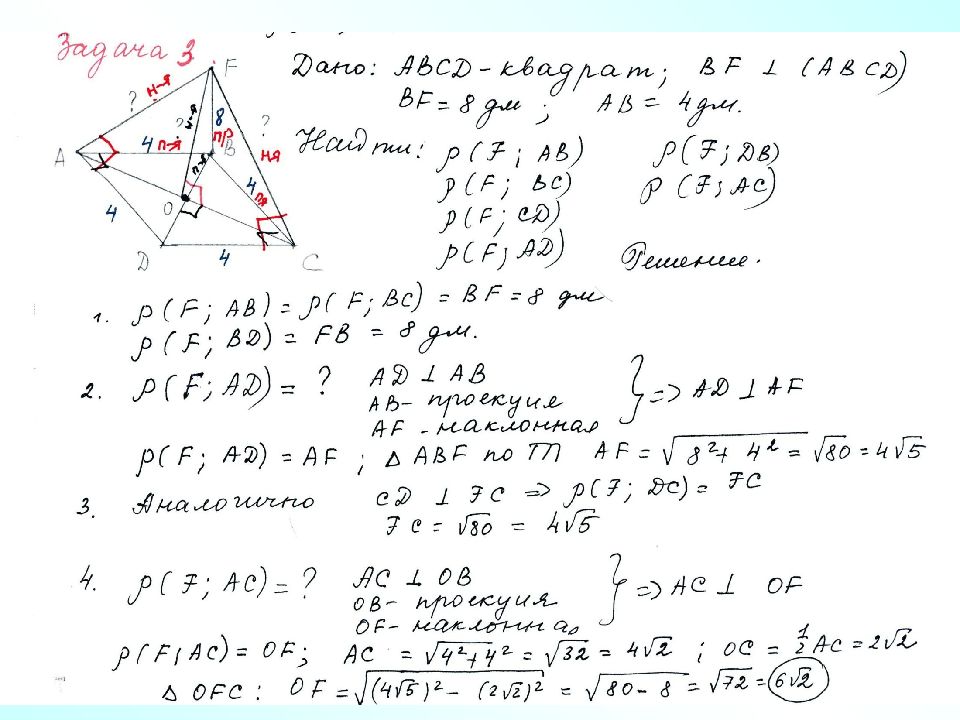 Задача 3.
Дано: ABCD - квадрат; BF ⊥ (ABCD)
BF = 8 дм; AB = 4 дм.
Найти: ρ(F; AB) ρ(F; DB)
ρ(F; BC) ρ(F; AC)
ρ(F; CD)
ρ(F; AD) Решение.
F
? н-я
? н-я 8 пр ?
A 4 п-я B н-я
п-я
4 O 4 пр
D 4 C
1. ρ(F; AB) = ρ(F; BC) = BF = 8 дм
ρ(F; BD) = FB = 8 дм.
2. ρ(F; AD) = ? AD ⊥ AB
AB - проекция } => AD ⊥ AF
AF - наклонная
ρ(F; AD) = AF ; Δ ABF по ТП AF = √8²+ 4² = √80 = 4√5
3. Аналогично CD ⊥ FC => ρ(F; DC) = FC
FC = √80 = 4√5
4. ρ(F; AC) = ? AC ⊥ OB
OB - проекция } => AC ⊥ OF
OF - наклонная
ρ(F; AC) = OF; AC = √4²+4² = √32 = 4√2 ; OC = ½ AC = 2√2
Δ OFC : OF = √(4√5)² - (2√2)² = √80 - 8 = √72 = 6√2